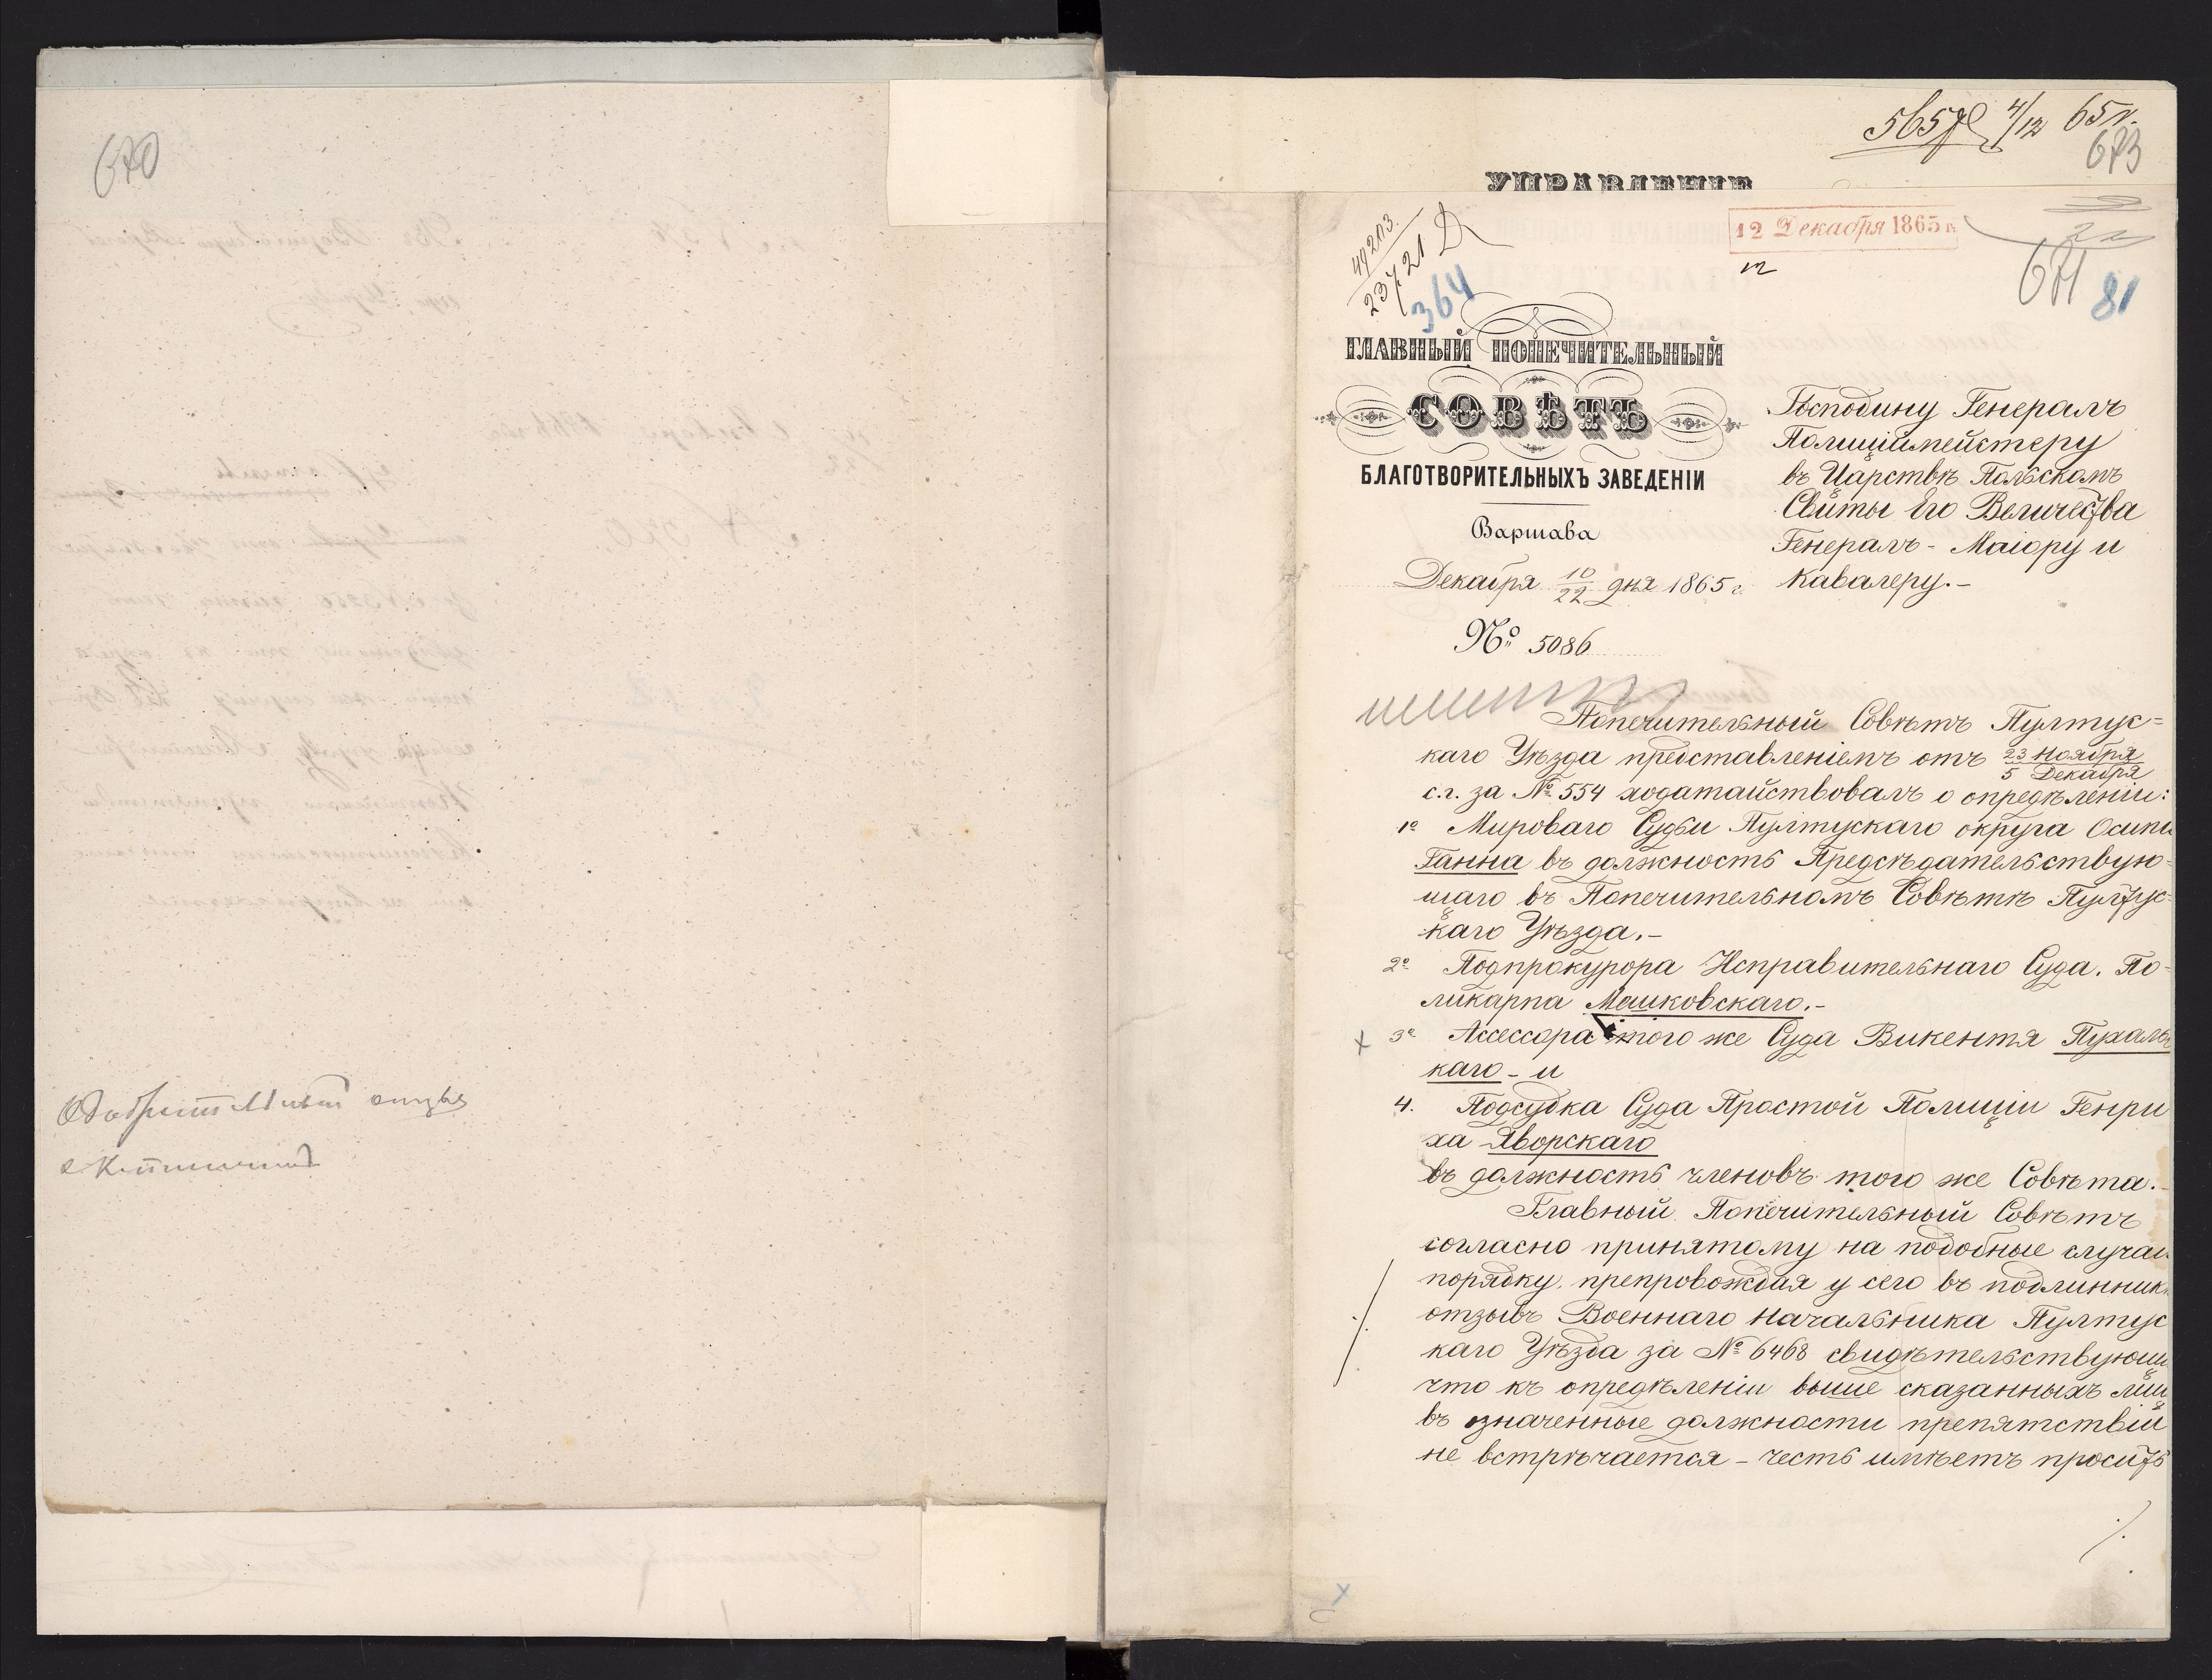 670
565
4/12 65 г.
673
УПРАВЛЕНІЕ
12 Декабря 1865 г.
671
81
364
ГЛАВНЫЙ ПОПЕЧИТЕЛЬНЫЙ
СОВѢТЪ
БЛАГОТВОРИТЕЛЬНЫХЪ ЗАВЕДЕНІИ
Варшава
Декабря 10/22 дня 1865 г.
№ 5086
Господину Генералъ
Полиціймейстеру
въ Царствѣ Польскомъ
Свиты Его Величества
Генералъ-Маіору и
Кавалеру.-
Попечительный Совѣтъ Пултус=
каго Уѣзда представленіемъ отъ 23 Ноября / 5 Декабря
с.г. за № 554 ходатайствовалъ о опредѣленіи:
1º Мироваго Судьи Пултускаго округа Осипа
Ганна въ должность Предсѣдательствую=
щаго въ Попечительномъ Совѣтѣ Пултус=
каго Уѣзда.-
2º Подпрокурора Исправительнаго Суда. По=
ликарпа Машковскаго.-
3º Ассессора того же Суда Викентя Пухальс
каго - и
4. Подсудка Суда Простой Полиціи Генри
ха Яворскаго
въ должность членовъ того же Совѣта.-
Главный Попечительный Совѣтъ
согласно принятому на подобные случаи
порядку препровождая у сего въ подлинник
отзывъ Военнаго Начальника Пултус
каго Уѣзда за № 6468 свидѣтельствующ
что къ опредѣленіи выше сказанныхъ лиц
въ означенные должности препятствій
не встрѣчается - честь имѣетъ просить